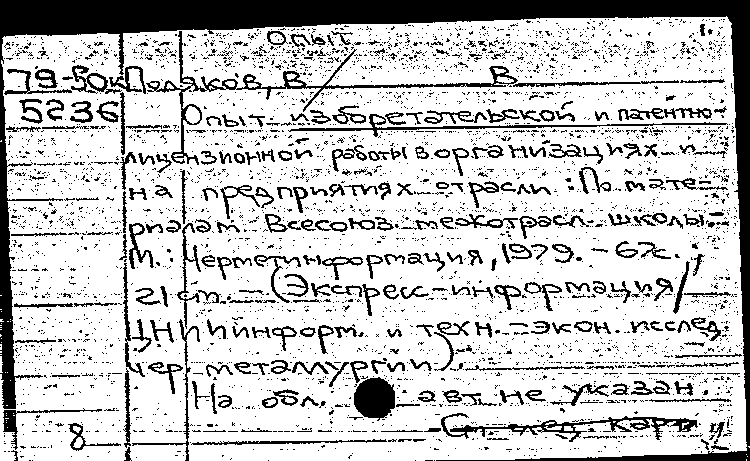 Опыт 1.
79-50к Поляков, В В
5236 Опыт изобретательской и патентно-
лицензионной работы в организациях и
на предприятиях отрасли : По мате-
риалам Всесоюз. межотрасл. школы. –
М. : Черметинформация, 1979. – 67с. ;
21 см. – (Экспресс-информация /
ЦНИИинформ. и техн.-экон. исслед.
чер. металлургии).
На обл. авт. не указан.
8 См. след. карт